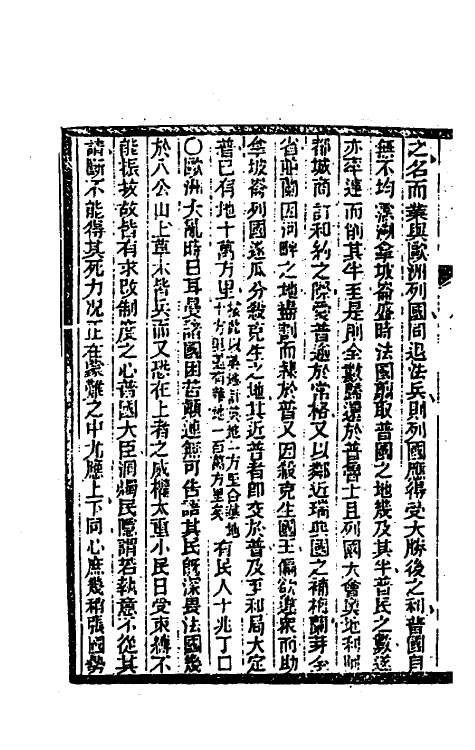 之名而業與歐洲列國同退法兵則列國應得受大勝後之利普國自
無不均霑溯拿坡崙盛時法國翦取普國之地幾及其半普民之數遂
亦率連而削其半至是則全數歸還於普魯士且列國大會奧地利
都城商訂和約之際愛普遍於常格又以鄰近瑞典國之補梅蘭芽全
省荷蘭因河畔之地撥割而隸於普又因殺克生國王偏欲違眾而助
拿坡崙列國遂瓜分殺克生之地其近普者即交於普及至和局大定
普已有地十萬方里 有民人十兆丁口
○歐洲大亂時日耳曼諸國困苦顛連無可告語其民既深畏法國幾
於八公山上草木皆兵而又恐在上者之威權太重小民日受束縛不
能振拔故皆有求改制度之心普國大臣洞燭民隱謂若執意不從其
請斷不能得其死力况正在蒙難之中尤應上下同心庶幾稍張國勢